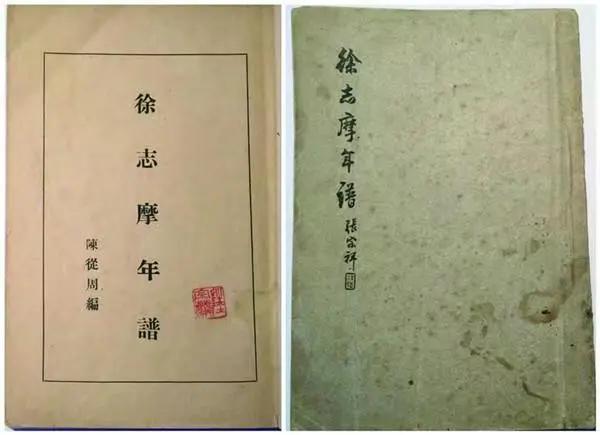 徐志摩年譜
陳從周編
徐志摩年譜
張宗祥